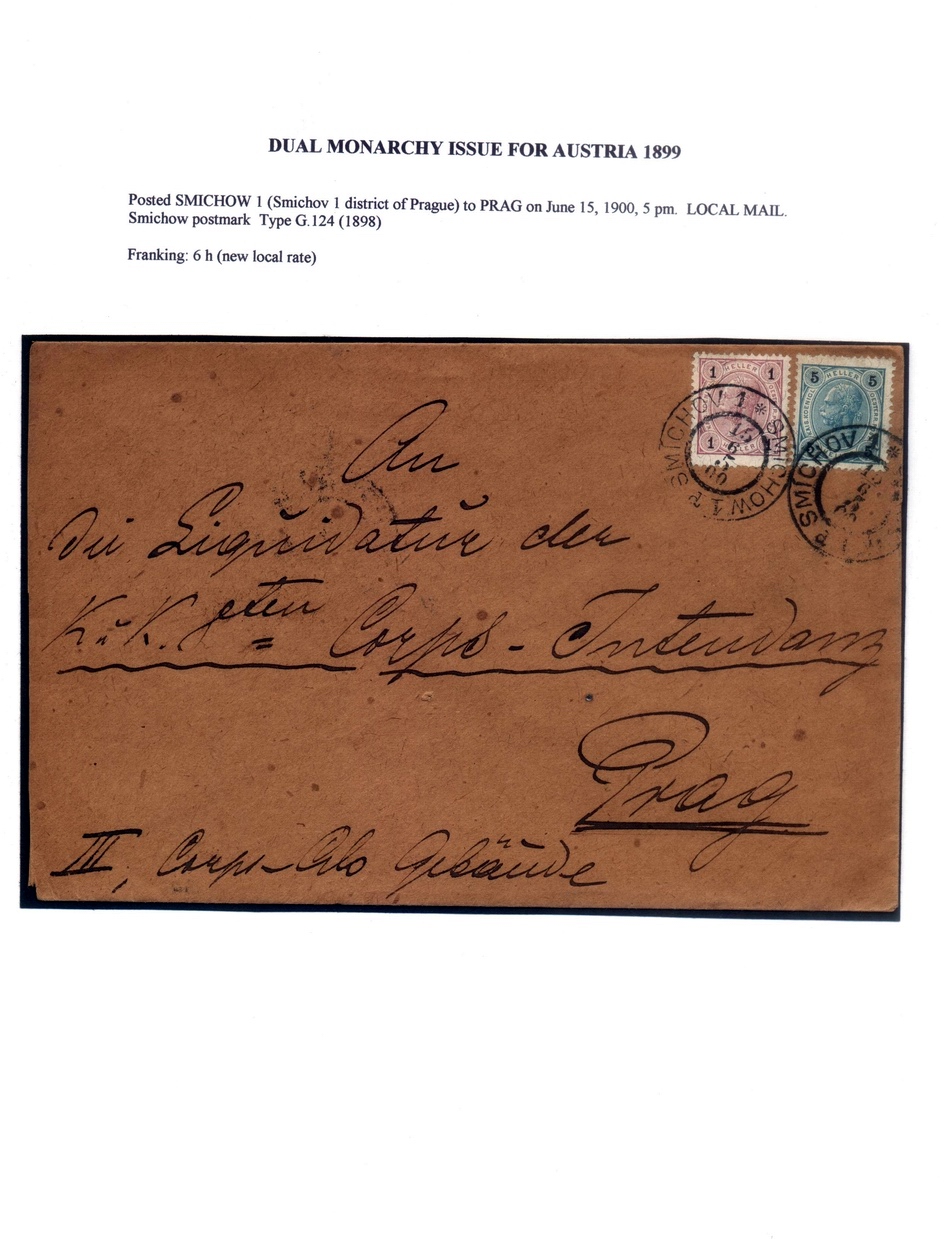 DUAL MONARCHY ISSUE FOR AUSTRIA 1899
Posted SMICHOW 1 (Smichov 1 district of Prague) to PRAG on June 15, 1900, 5 pm. LOCAL MAIL.
Smichow postmark Type G.124 (1898)
Franking: 6 h (new local rate)
1 HELLER 1
1 HELLER
5 HELLER 5
SMICHOV 1 * SMICHOW 1
15
6
5
00
SMICHOV 1 *
An
die Liquidatur der
K. u. K. 8ten Corps - Intendanz
Prag
III, Corps- Gebäude